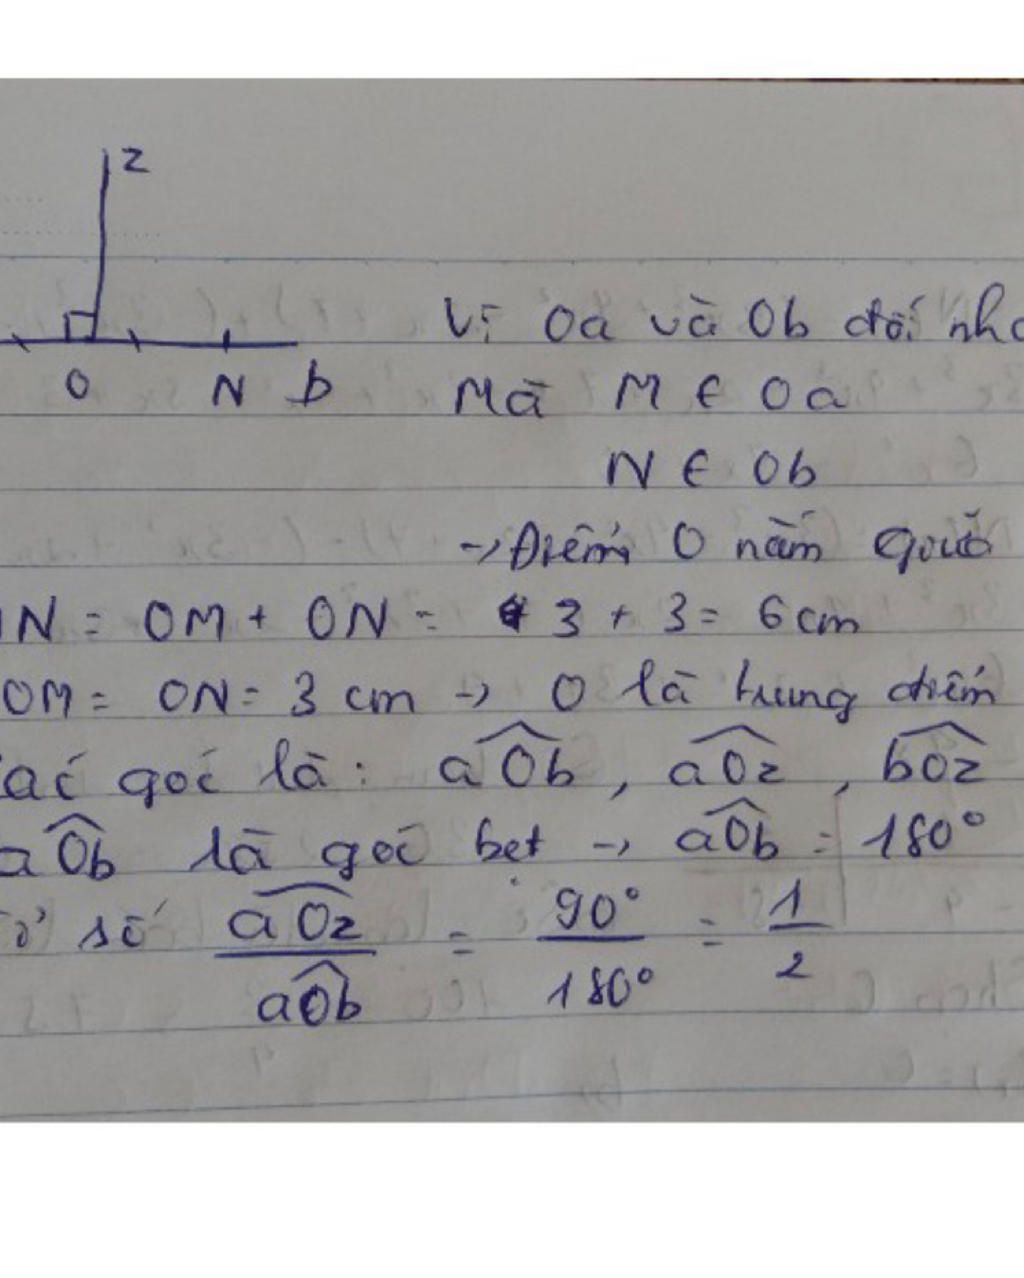 z
Vì Oa và Ob đối
O N b
Mà M ∈ Oa
N ∈ Ob
→ Điểm O nằm giữa
N = OM + ON = 3 + 3 = 6 cm
OM = ON = 3 cm → O là trung điểm
góc là: aOb, aOz, bOz
aOb là góc bẹt → aOb = 180°
số aOz/aOb = 90°/180° = 1/2